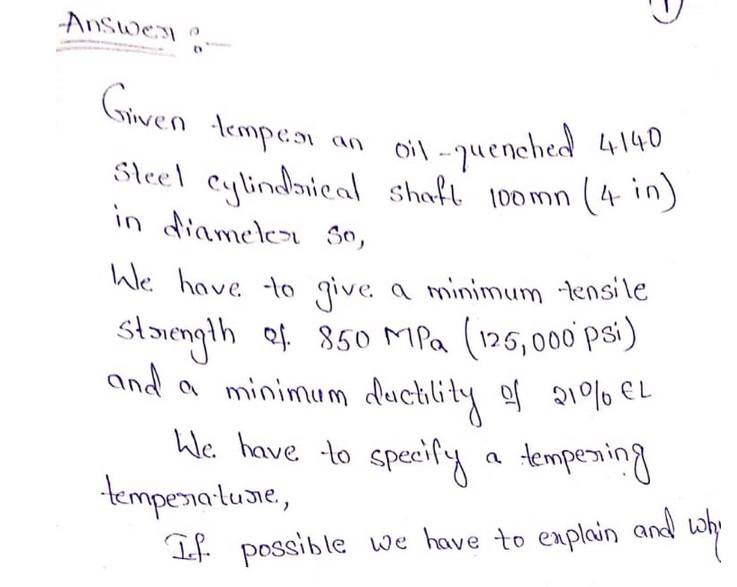 1
Answer :-
Given temper an oil-quenched 4140
Steel cylindrical shaft 100mn (4 in)
in diameter so,
We have to give a minimum tensile
strength of 850 MPa (125,000 psi)
and a minimum ductility of 21% EL
We have to specify a tempering
temperature,
If possible we have to explain and why